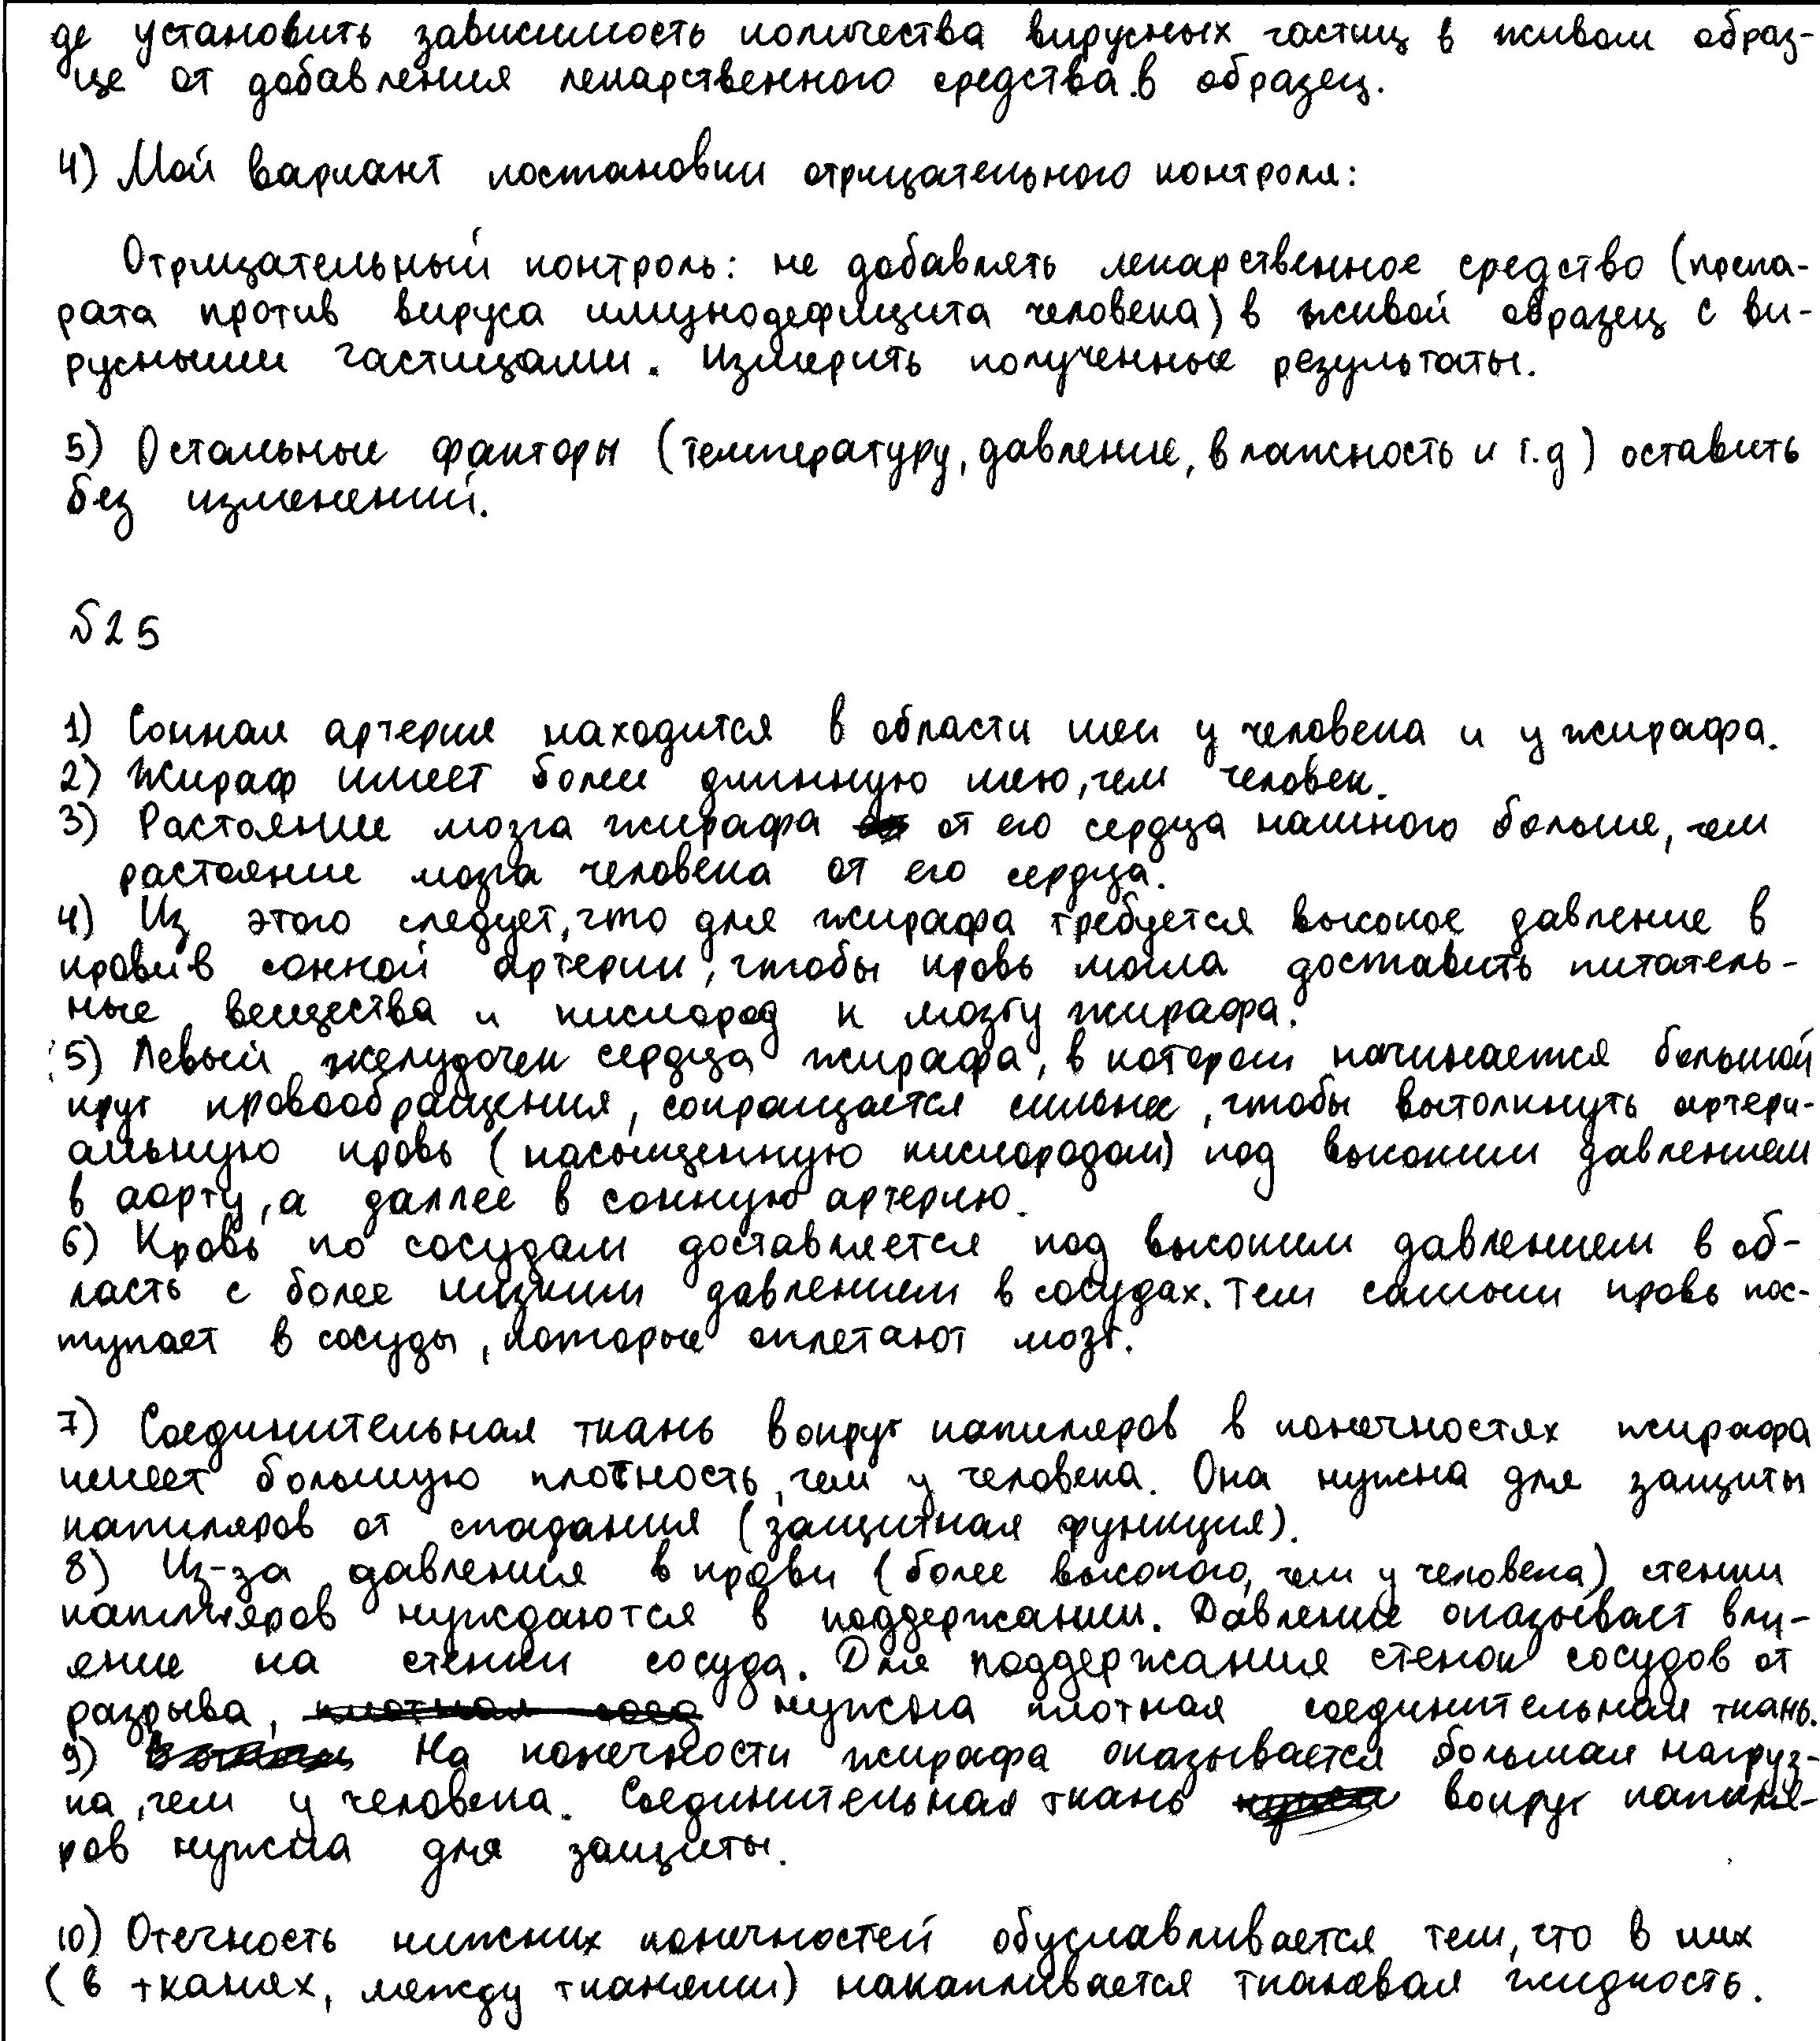 де установить зависимость количества вирусных частиц в живом образ-
це от добавления лекарственного средства в образец.
4) Мой вариант постановки отрицательного контроля:
Отрицательный контроль: не добавлять лекарственное средство (препа-
рата против вируса имунодефицита человека) в живой образец с ви-
русными частицами. Измерить полученные результаты.
5) Остальные факторы (температуру, давление, влажность и т.д) оставить
без изменений.
№25
1) Сонная артерия находится в области шеи у человека и у жирафа.
2) Жираф имеет более длинную шею, чем человек.
3) Растояние мозга жирафа от его сердца намного больше, чем
растояние мозга человека от его сердца.
4) Из этого следует, что для жирафа требуется высокое давление в
крови в сонной артерии, чтобы кровь могла доставить питатель-
ные вещества и кислород к мозгу жирафа.
5) Левый желудочек сердца жирафа, в котором начинается большой
круг кровообращения, сокращается сильнее, чтобы вытолкнуть артери-
альную кровь (насыщенную кислородом) под высоким давлением
в аорту, а даллее в сонную артерию.
6) Кровь по сосудам доставляется под высоким давлением в об-
ласть с более низким давлением в сосудах. Тем самым кровь пос-
тупает в сосуды, которые оплетают мозг.
7) Соединительная ткань вокруг капиляров в конечностях жирафа
имеет большую плотность, чем у человека. Она нужна для защиты
капиляров от спадания (защитная функция).
8) Из-за давления в крови (более высокого, чем у человека) стенки
капиляров нуждаются в поддержании. Давление оказывает вли-
яние на стенки сосуда. Для поддержания стенок сосудов от
разрыва, нужна плотная соединительная ткань.
9) На конечности жирафа оказывается большая нагруз-
ка, чем у человека. Соединительная ткань вокруг капиля-
ров нужна для защиты.
10) Отечность нижних конечностей обуславливается тем, что в них
(в тканях, между тканями) накапливается тканевая жидкость.